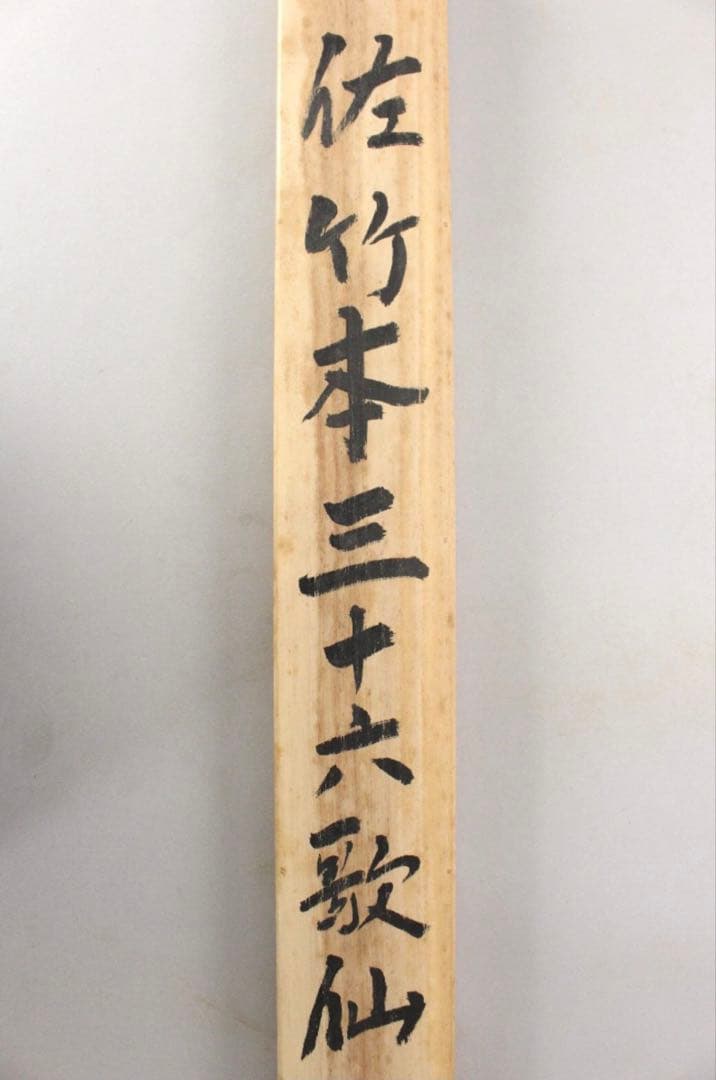 佐竹本三十六歌仙